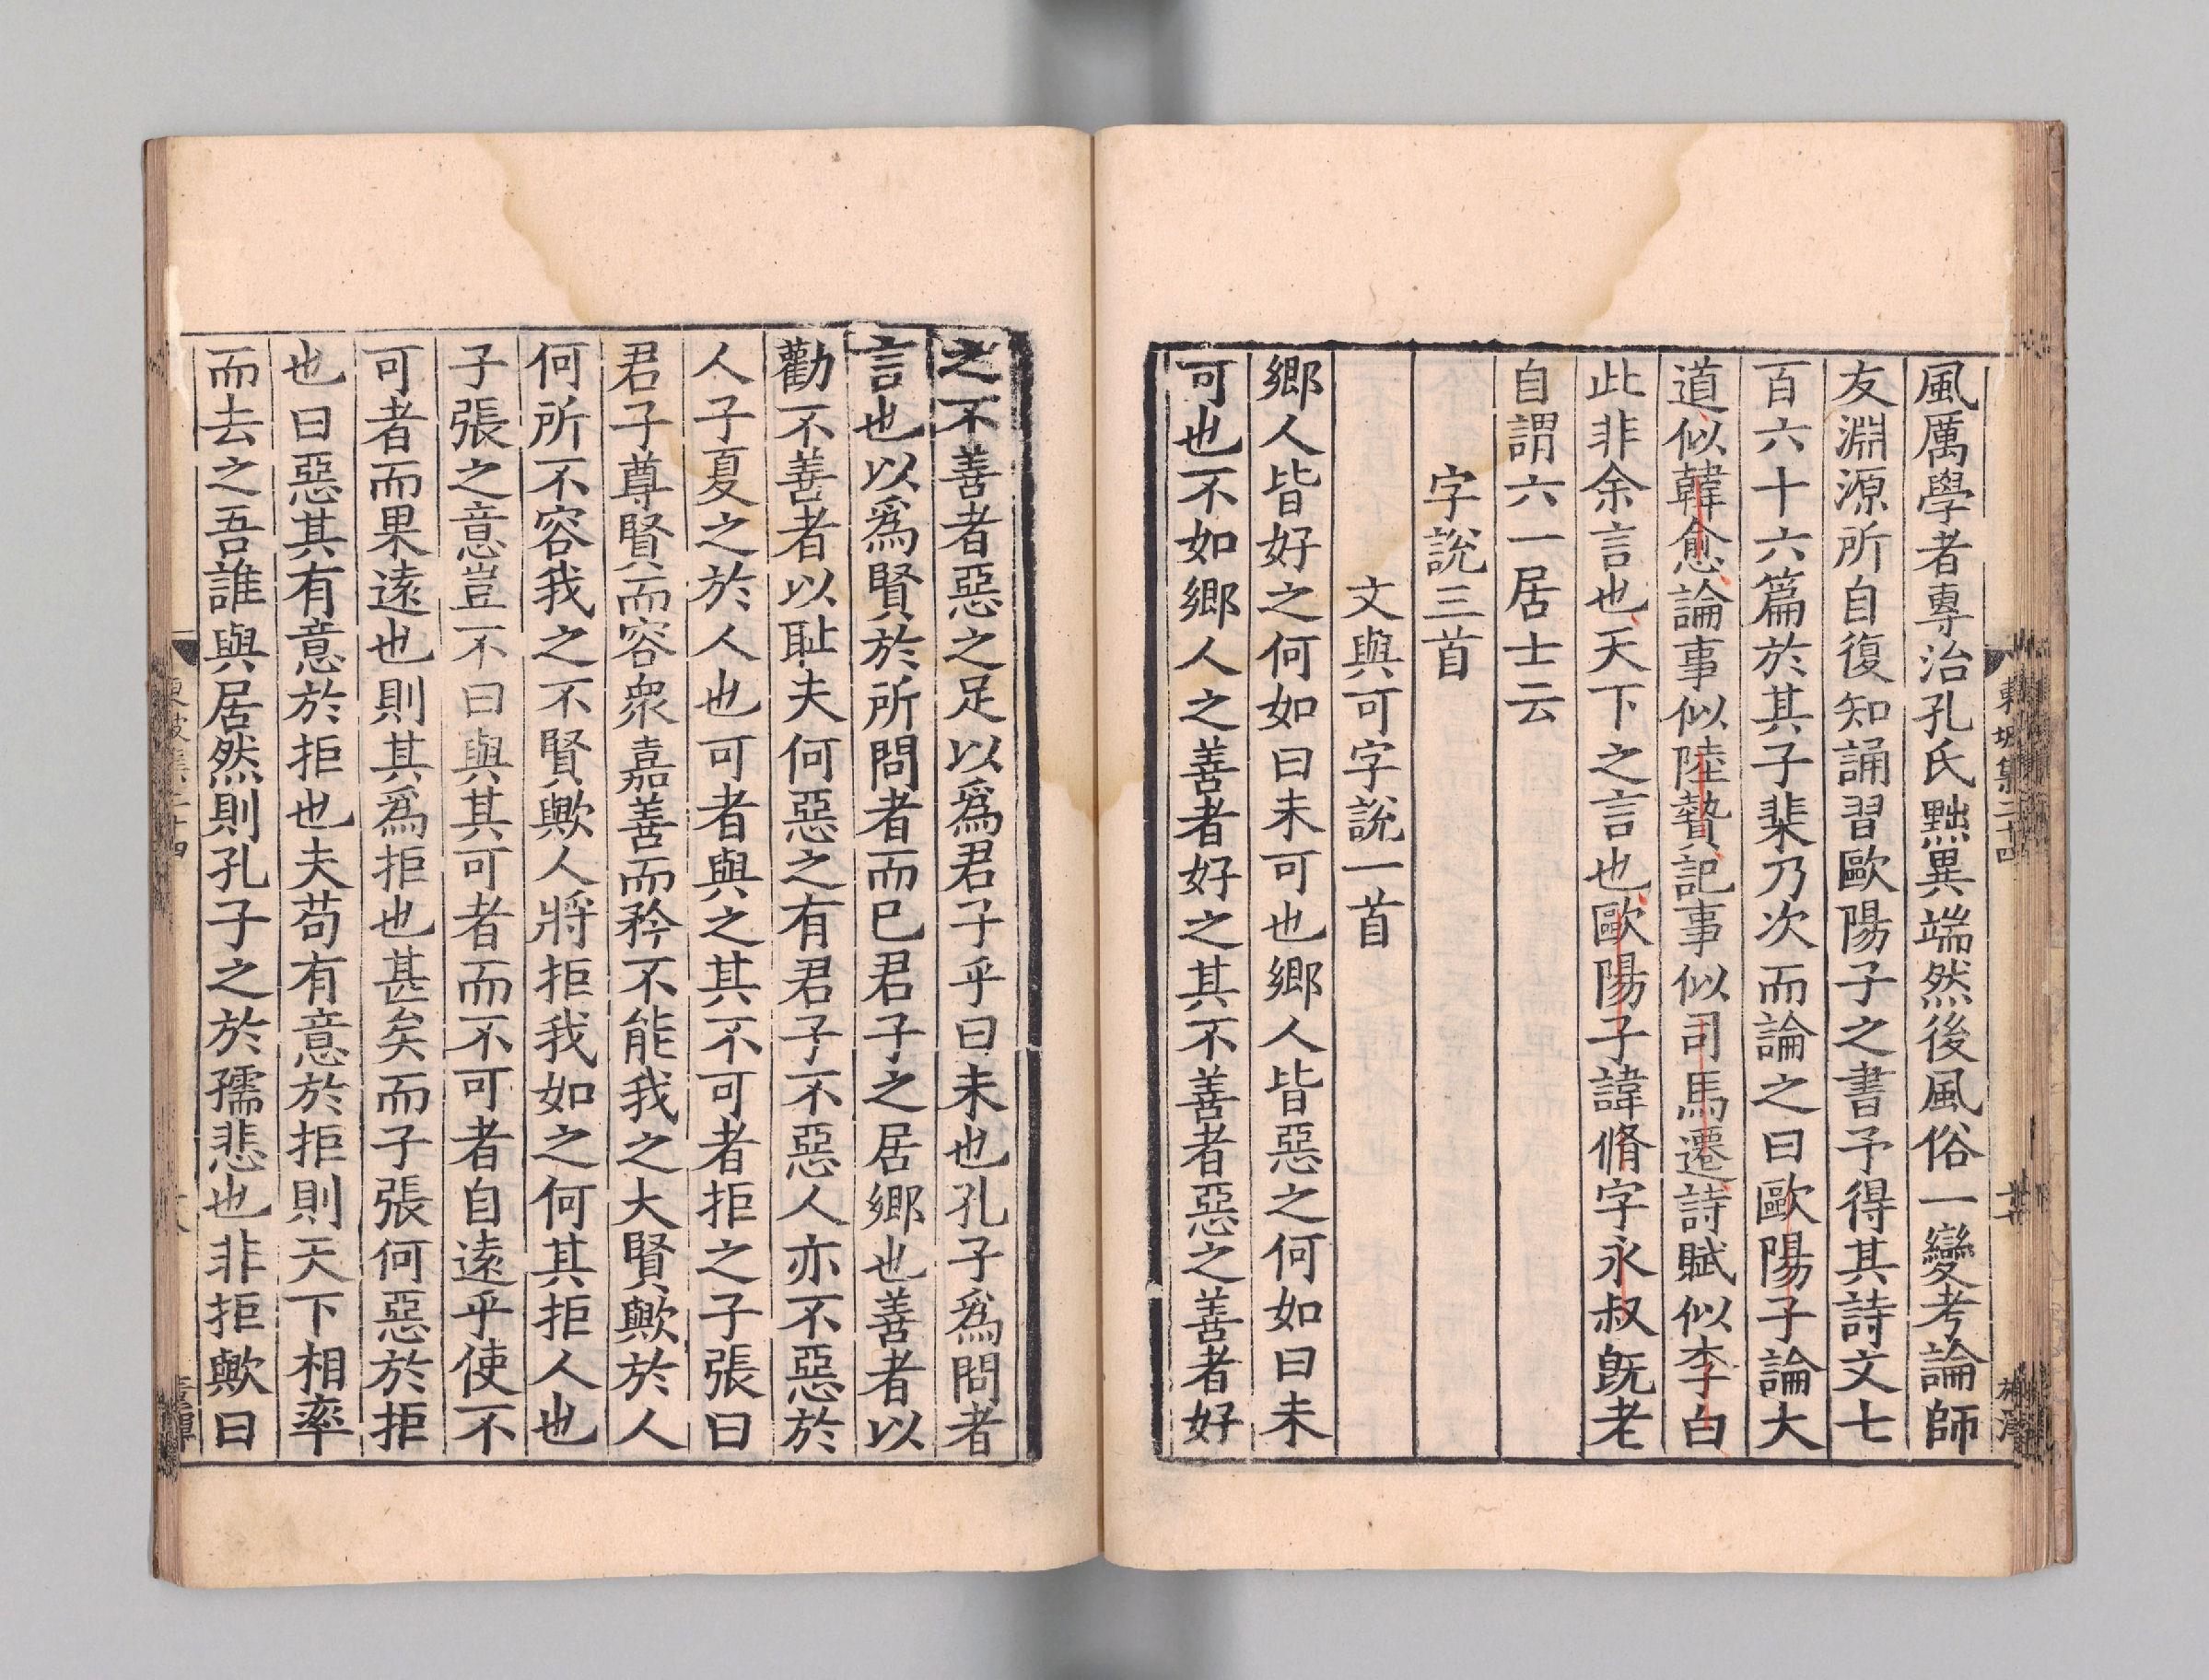 風厲學者專治孔氏黜異端然後風俗一變考論師
友淵源所自復知誦習歐陽子之書予得其詩文七
百六十六篇於其子棐乃次而論之曰歐陽子論大
道似韓愈論事似陸贄記事似司馬遷詩賦似李白
此非余言也天下之言也歐陽子諱脩字永叔既老
自謂六一居士云
字說三首
文與可字說一首
鄉人皆好之何如曰未可也鄉人皆惡之何如曰未
可也不如鄉人之善者好之其不善者惡之善者好
之不善者惡之足以爲君子乎曰未也孔子爲問者
言也以爲賢於所問者而已君子之居鄉也善者以
勸不善者以恥夫何惡之有君子不惡人亦不惡於
人子夏之於人也可者與之其不可者拒之子張曰
君子尊賢而容衆嘉善而矜不能我之大賢歟於人
何所不容我之不賢歟人將拒我如之何其拒人也
子張之意豈不曰與其可者而不可者自遠乎使不
可者而果遠也則其爲拒也甚矣而子張何惡於拒
也曰惡其有意於拒也夫苟有意於拒則天下相率
而去之吾誰與居然則孔子之於孺悲也非拒歟曰